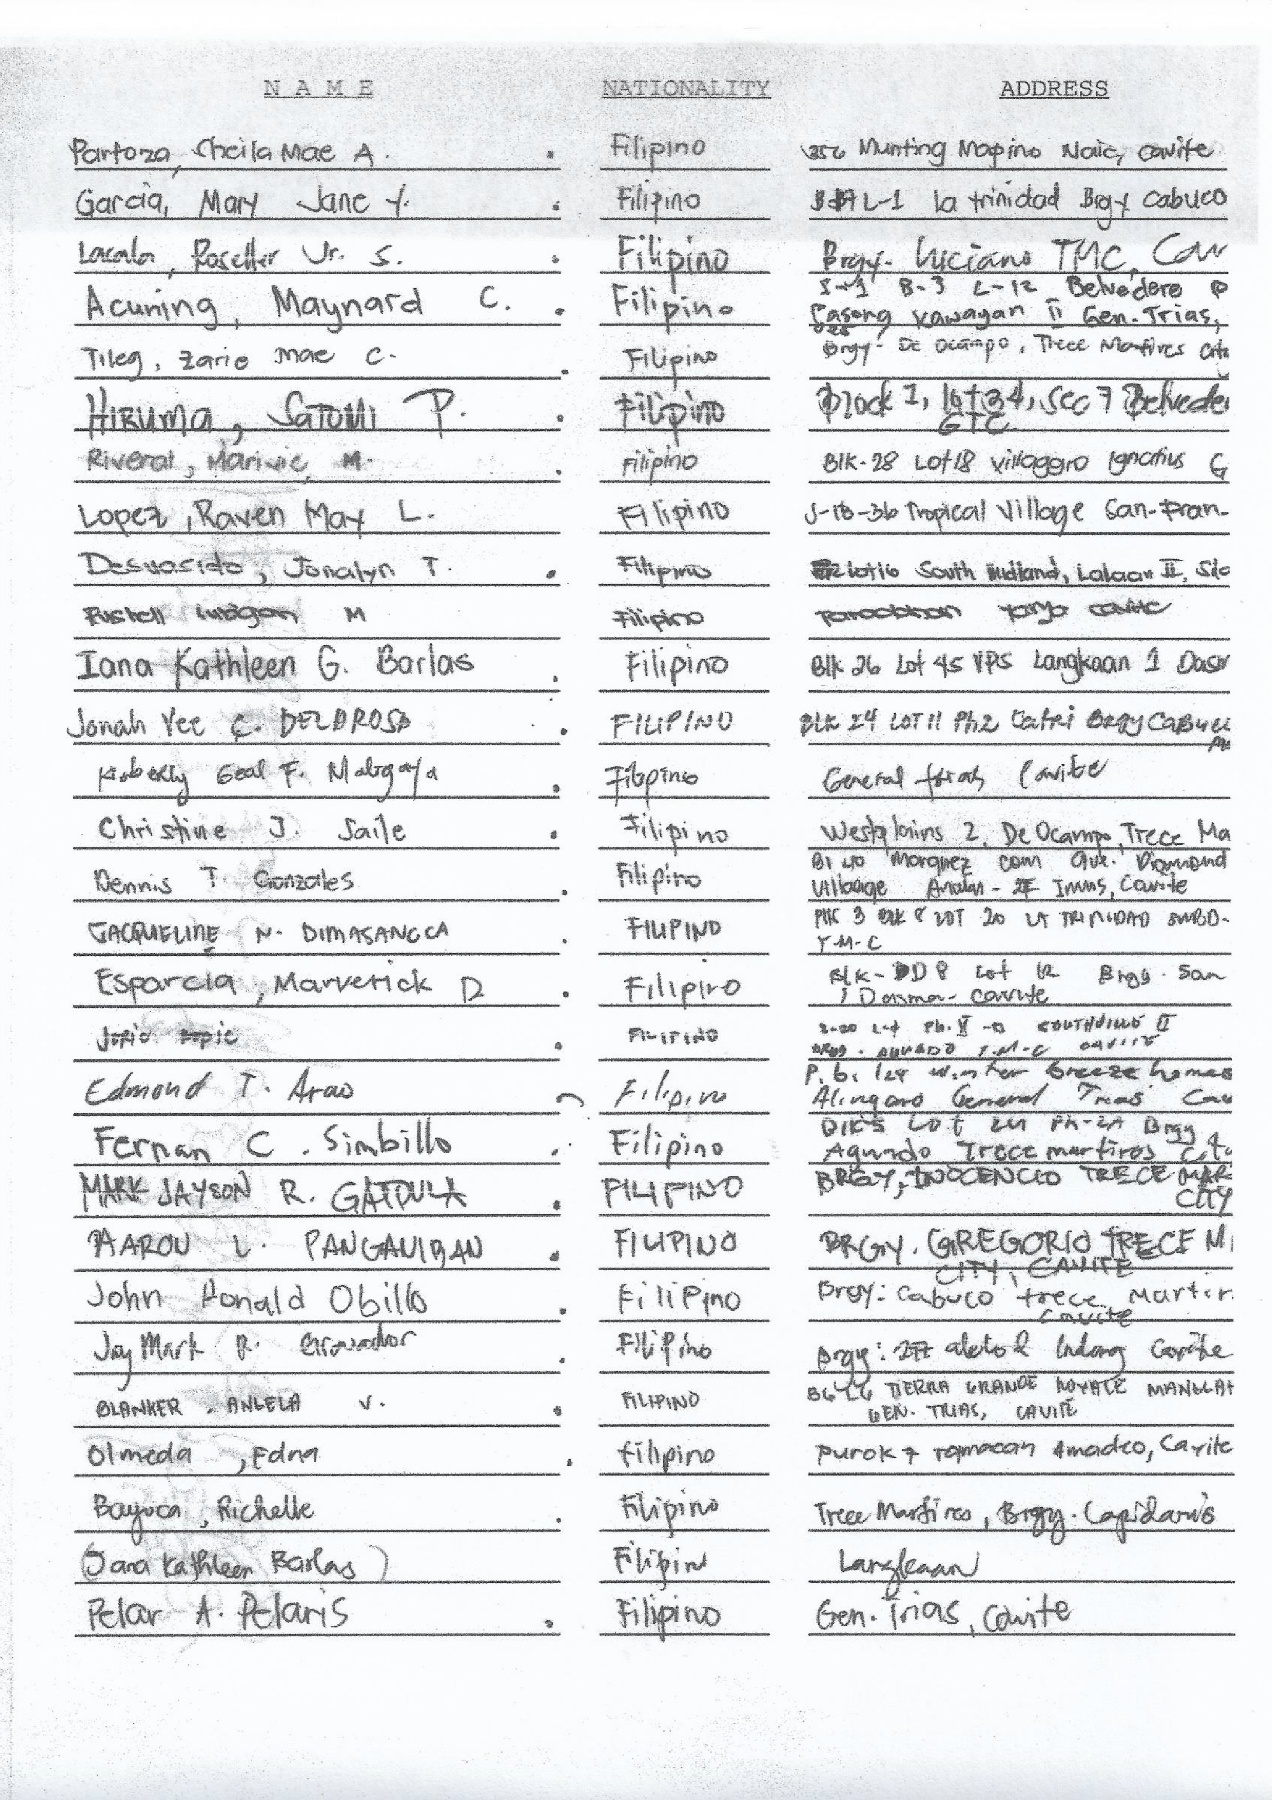 NAME NATIONALITY ADDRESS
Partoza, Cheila Mae A. Filipino 256 Munting Mapino Naic, Cavite
Garcia, Mary Jane Y. Filipino L-1 La trinidad Brgy Cabuco
Lacala, Roseller Jr. S. Filipino Brgy. Luciano TMC, Cav
S-1 B-3 L-12 Belvedere
Acuning, Maynard C. Filipino Pasong Kawayan II Gen. Trias,
Tileg, Zarie Mae C. Filipino Brgy- De Ocampo, Trece Martires
HIRUMA, SATOMI P. Filipino Block 1, lot 34, sec 7 Belvede
GTC
Rivera, Marivic, M. Filipino Blk-28 Lot 18 Villaggio Ignatius G
Lopez, Raven May L. Filipino J-18-36 Tropical Village San-Fran-
Desvosido, Jonalyn T. Filipino Lot 16 South Midland, Lalaan II,
M Filipino cavite
Iana Kathleen G. Barlas Filipino Blk 26 Lot 45 VPS Langkaan 1 Dasm
Jonah Vee C. DELDROSA FILIPINO BLK 24 LOT 11 Ph2 Brgy Cabuc
Geal F. Maligaya Filipino General trias Cavite
Christine J. Saile Filipino Westplains 2, De Ocampo, Trece Ma
Marquez com Ave. Diamond
Dennis T. Gonzales Filipino Village Anabu - II Imus, Cavite
JACQUELINE N. DIMASANGCA FILIPINO 3 BLK 8 LOT 20 LA TRINIDAD SUBD.
T.M.C
Esparcia, Marverick D Filipino Blk- DD8 Lot 12 Brgy. San
Dasma- Cavite
FILIPINO SOUTHVILLE II
T.M.C CAVITE
Edmond T. Arao Filipino P.6. 124 Winter Breeze homes
Alingaro General Trias Cav
Fernan C. Simbillo Filipino Blk 5 Lot 24 PH-2A Brgy
Aguado Trece martires City
MARK JAYSON R. GATDULA FILIPINO BRGY, INOCENCIO TRECE MAR
CITY
AARON L. PANGANIBAN FILIPINO BRGY. GREGORIO TRECE M
CITY, CAVITE
John Ronald Obillo Filipino Brgy: Cabuco trece Martir
Cavite
Jay Mark R. Gravador Filipino Brgy: Indang Cavite
BLANKER, ANGELA V. FILIPINO B6 L6 TIERRA GRANDE ROYALE MANGGAH
GEN. TRIAS, CAVITE
Olmeda, Edna filipino Purok 7 Tamacan Amadeo, Cavite
Bayuca, Richelle Filipino Trece Martires, Brgy. Lapidario
(Iana Kathleen Barlas) Filipin Langkaan
Pelar A. Pelaris Filipino Gen. Trias, Cavite